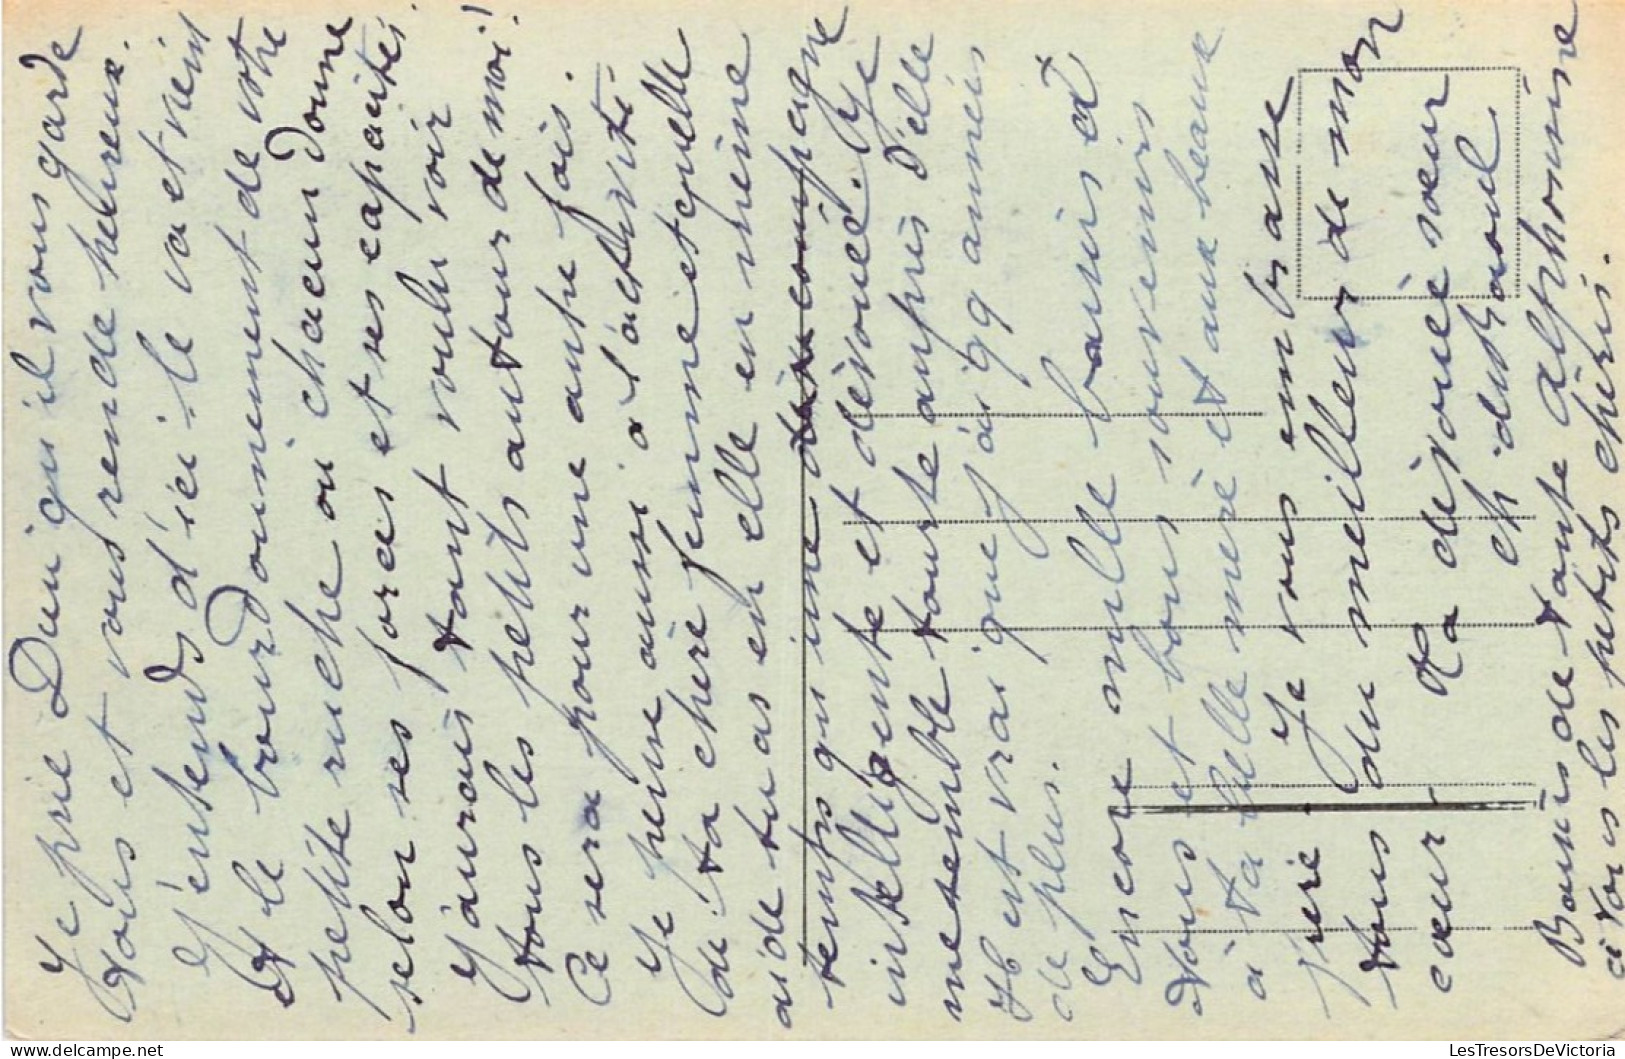 Je prie Dieu qu'il vous garde
tous et vous rende heureux.
J'entends d'ici le va et vient
et le bourdonnement de votre
petite ruche où chacun donne
selon ses forces et ses capacités.
J'aurais tant voulu voir
tous les petits autour de moi!
Ce sera pour une autre fois.
Je pense aussi à l'activité
de ta chère femme et quelle
aide tu as en elle en même
temps qu'une compagne
intelligente et dévouée. Je
me semble toute auprès d'elle
Il est vrai que j'ai 99 années
de plus.
Encore mille baisers à
tous et bons souvenirs
à ta belle mère et aux beaux
frère. Je vous embrasse
tous du meilleur de mon
cœur. Ta dévouée sœur
Ch. duBaoul.
Baisers de tante Alphonsine
à tous les petits chéris.
© delcampe.net
LesTresorsDeVictoria